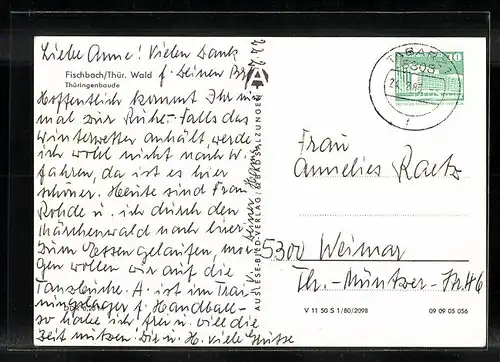 Liebe Anne! Vielen Dank
Fischbach/Thür. Wald
f. Deinen Br
Thüringenbaude
Hoffentlich kommt Ihr nun
mal zur Ruhe. Falls das
Winterwetter anhält werde
ich wohl nicht nach W.
fahren, da ist es hier
schöner. Heute sind Frau
Rohde u. ich durch den
Märchenwald nach hier
zum Essen gelaufen, mor-
gen wollen wir auf die
Tanzbuche. A. ist im Trai-
ningslager f. Handball-
so habe ich frei u. will die
Zeit nutzen. Dir u. H. viele Grüße
AUSLESE-BILD-VERLAG
BAD SALZUNGEN
TABARZ
5808
10
Frau
Annelies Raetz
5300 Weimar
Th.-Müntzer-Str. 46
V 11 50 S 1/80/2098
09 09 05 056